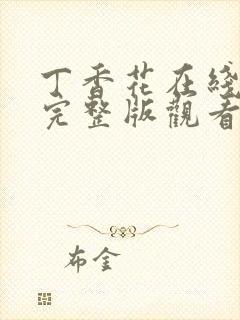 丁香花在綫
完整版觀看
布金